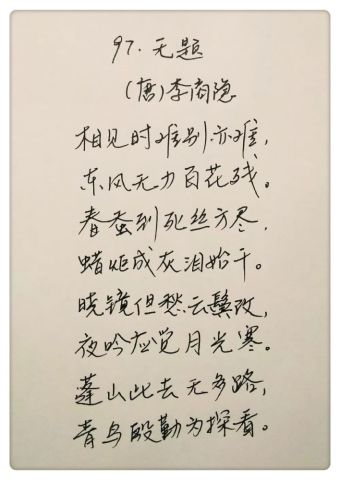 97.无题
(唐)李商隐
相见时难别亦难,
东风无力百花残。
春蚕到死丝方尽,
蜡炬成灰泪始干。
晓镜但愁云鬓改,
夜吟应觉月光寒。
蓬山此去无多路,
青鸟殷勤为探看。